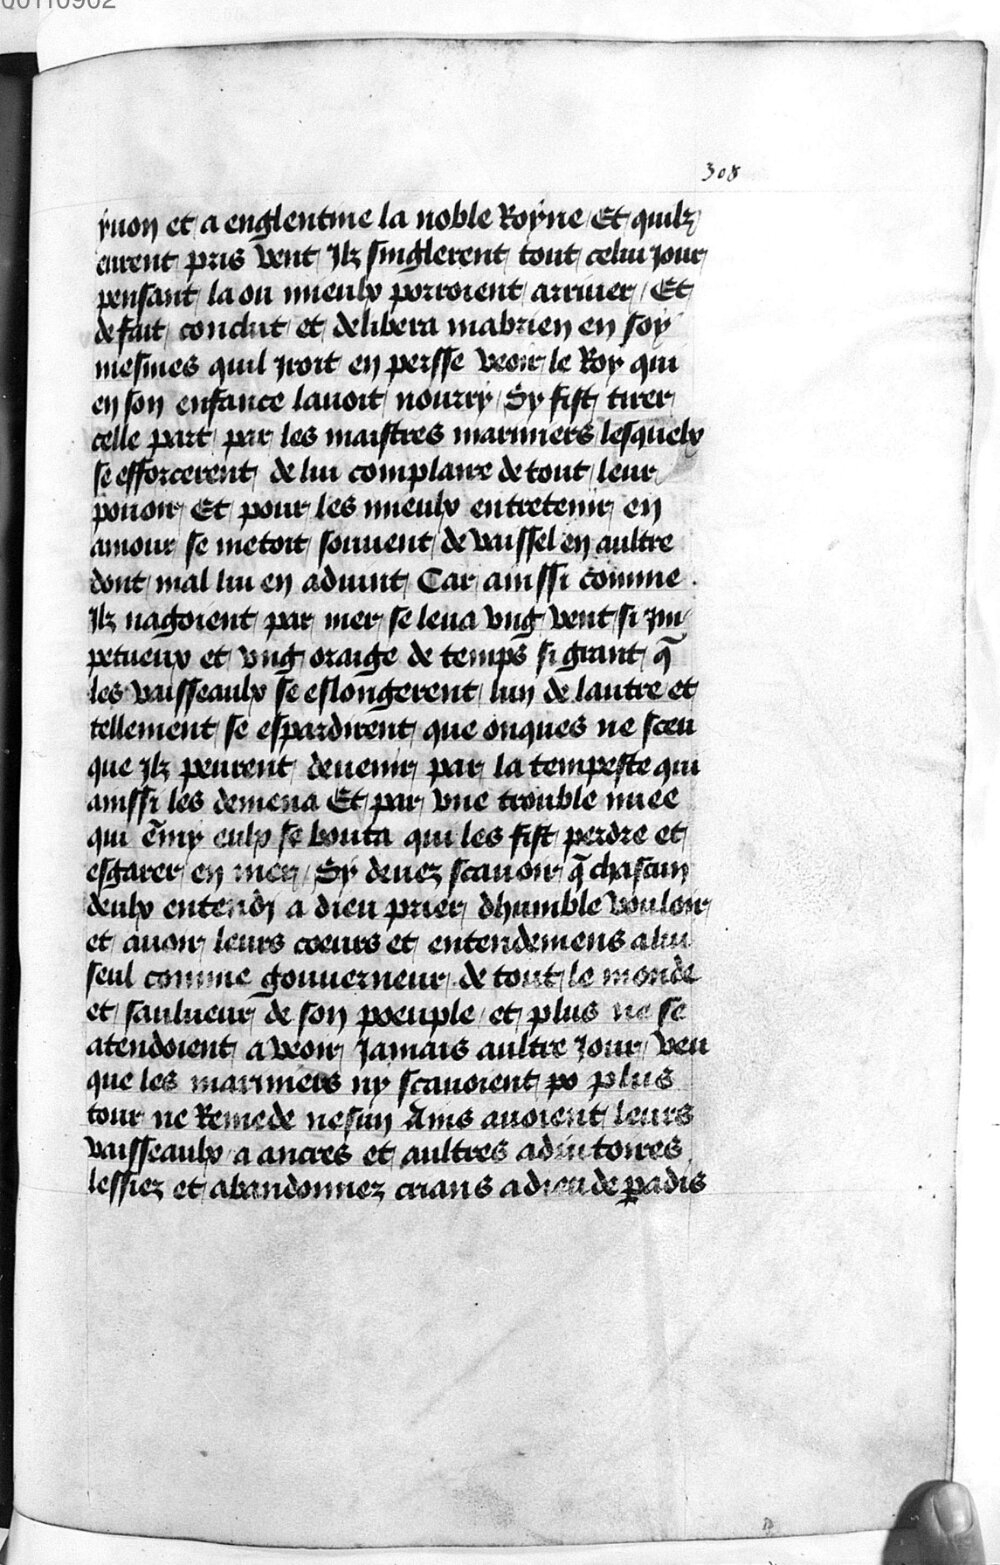 00110902
308
yuon et a englentine la noble Royne Et quilz
eurent pris vent Ilz singlerent tout celui jour
pensant la ou mieulx porroient arriuer / Et
de fait conclut et delibera mabrien en soy
mesmes quil jroit en persse veoir le Roy qui
en son enfance lauoit nourry Sy fist tirer
celle part par les maistres maronniers lesquelx
se efforcerent de lui complaire de tout leur
pouoir Et pour les mieulx entretenir en
amour se metoit souuent de vaissel en aultre
dont mal lui en aduint Car ainssi comme
Ilz nagoient par mer se leua vng vent si Im
petueux et vng oraige de temps si grant q̄
les vaisseaulx se eslongerent lun de lautre et
tellement se espardirent que onques ne sceu
que Ilz peurent deuenir par la tempeste qui
ainssi les demena Et par vne trouble nuee
qui ēmy eulx se bouta qui les fist perdre et
esgarer en mer / Sy deuez scauoir q̄ chascun
deulx entendi a dieu prier dhumble vouloir
et auoir leurs coeurs et entendemens a lui
seul comme gouuerneur de tout le monde
et saulueur de son poeuple et plus ne se
atendoient a veoir Jamais aultre Jour veu
que les maronniers ny scauoient po plus
tour ne Remede nesun Ains auoient leurs
vaisseaulx a ancres et aultres adiutoires
lessiez et abandonnez crians a dieu de p̲adis